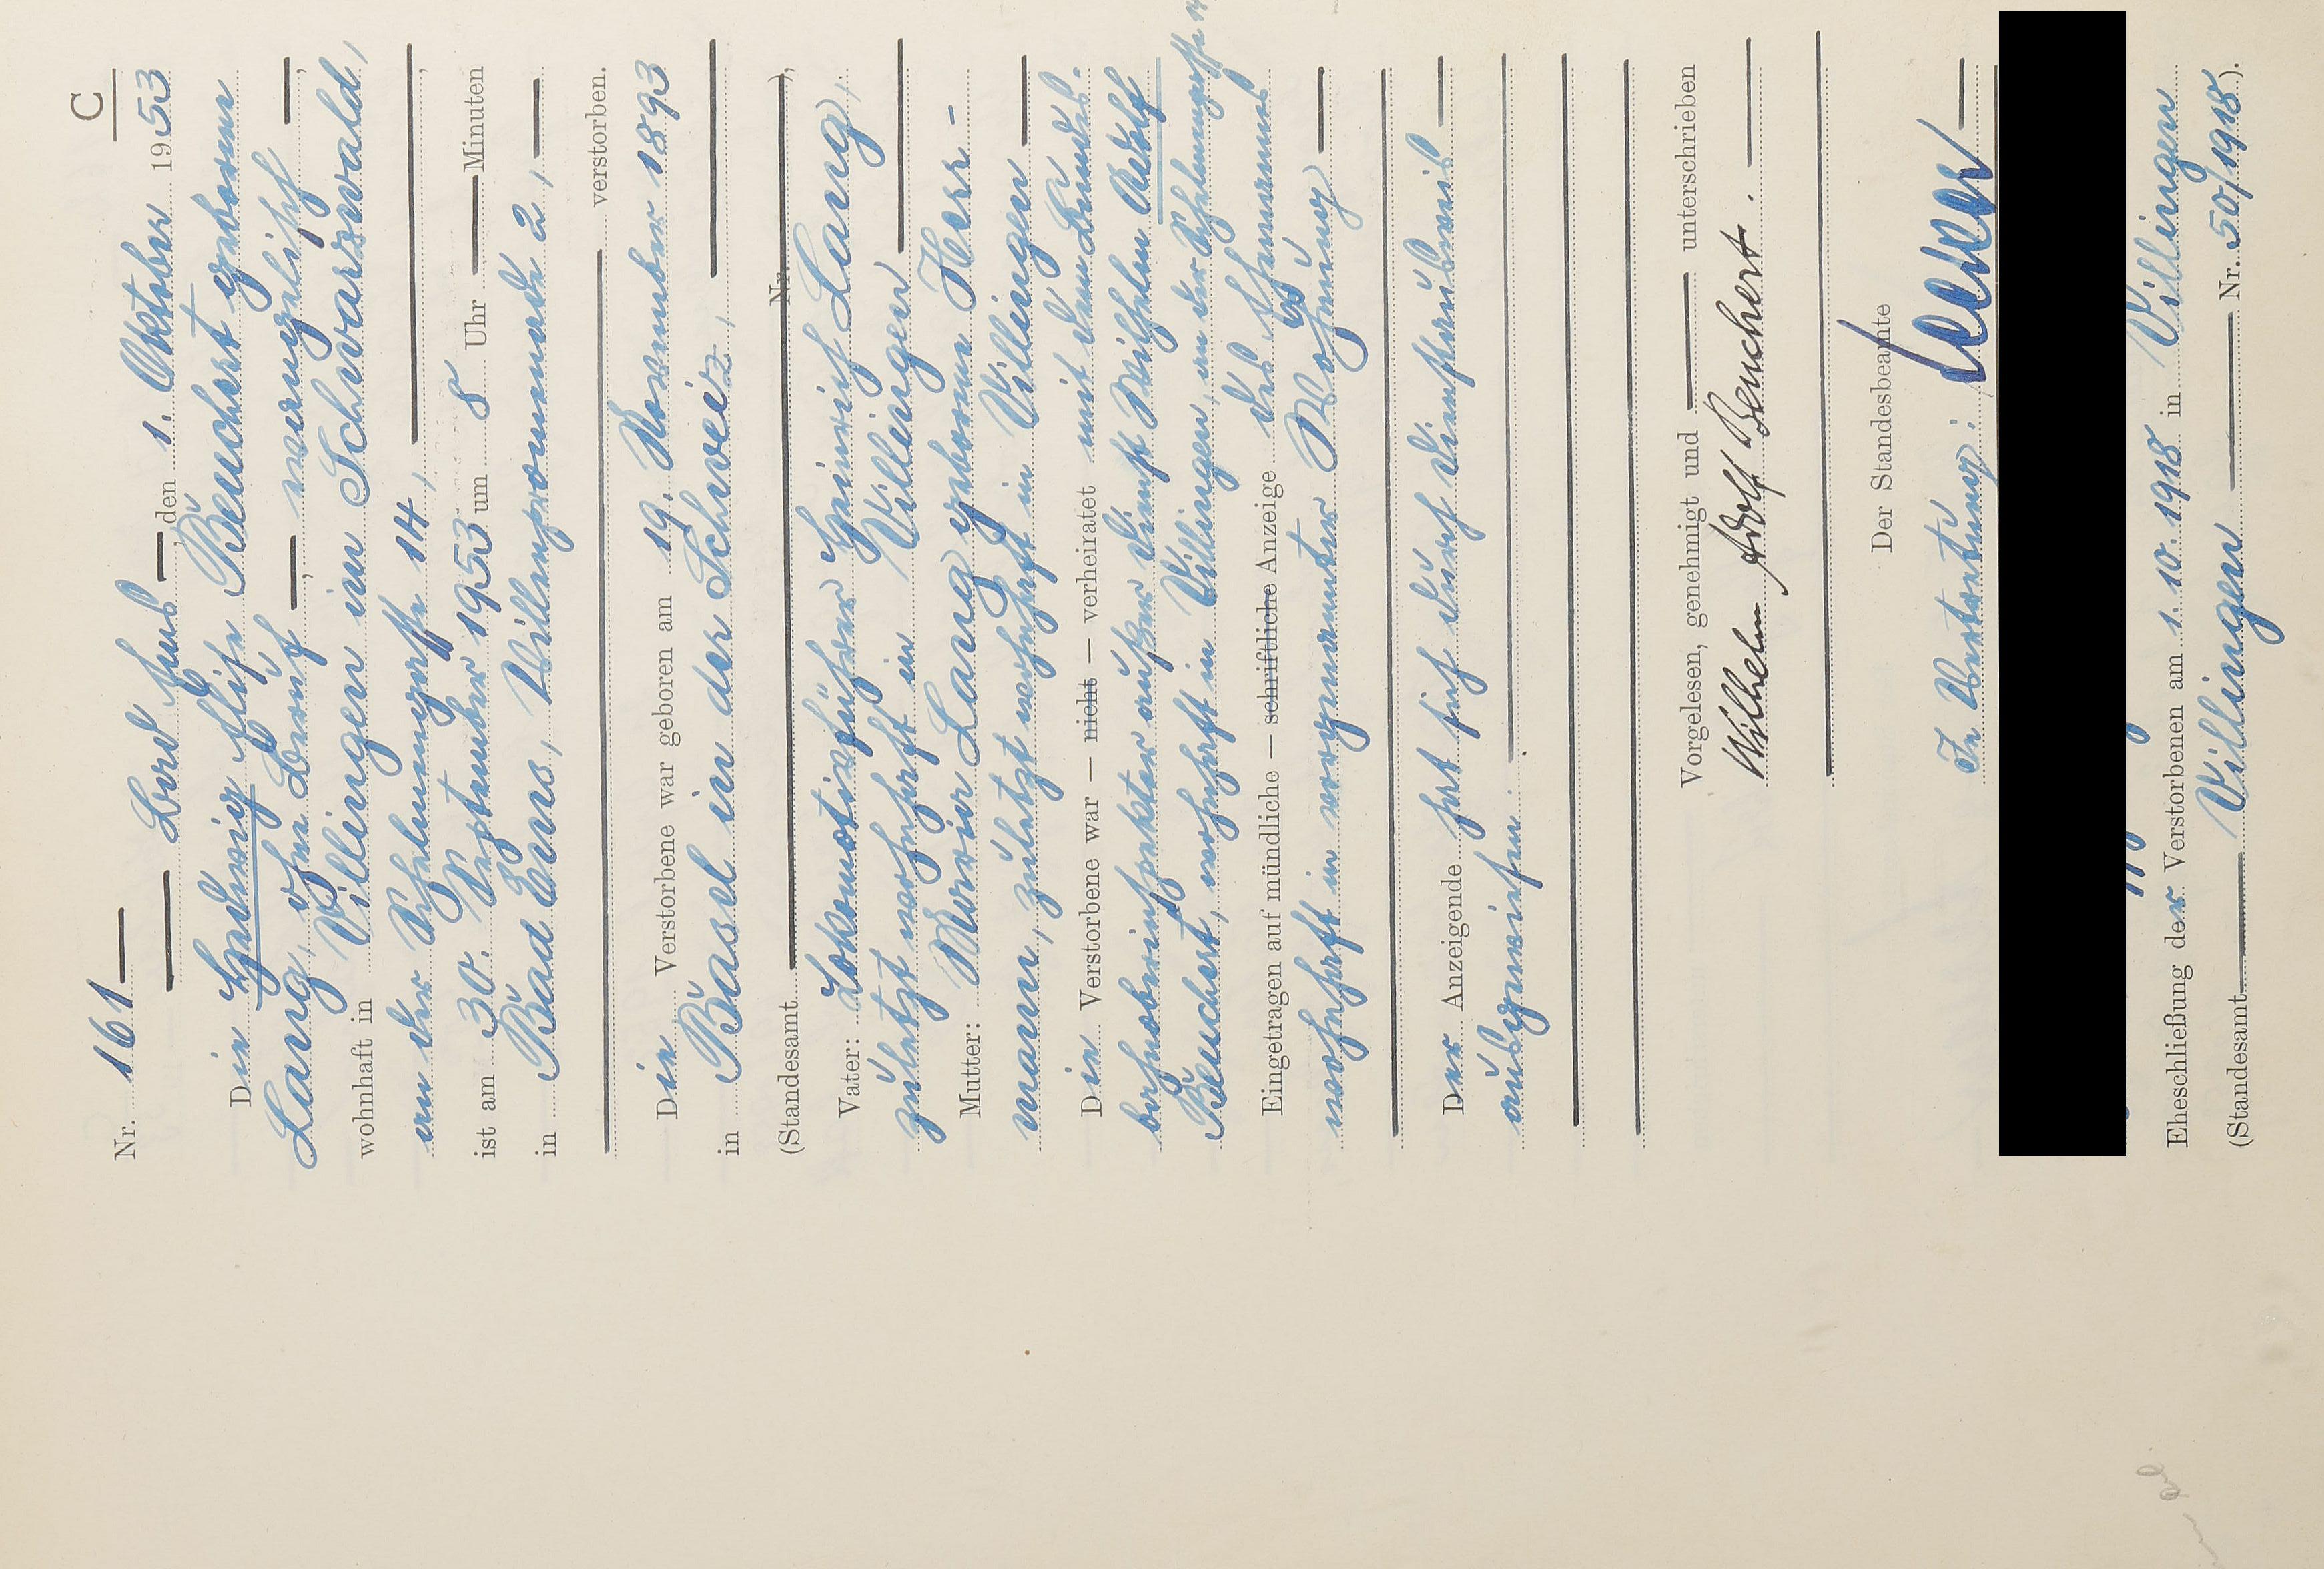 C
Nr. 161
Bad Ems den 1. Oktober 1953
Die Hedwig Elise Beuchert geborene
Lang, ohne Beruf, evangelisch,
wohnhaft in Villingen im Schwarzwald,
an der Schelmengass 14,
ist am 30. September 1953 um 8 Uhr Minuten
in Bad Ems, Villenpromenade 2,
verstorben.
Die Verstorbene war geboren am 19. November 1893
in Basel in der Schweiz,
(Standesamt Nr. ),
Vater: Lokomotivführer Heinrich Lang,
zuletzt wohnhaft in Villingen
Mutter: Maria Lang geborene Herr-
mann, zuletzt wohnhaft in Villingen
Die Verstorbene war — nicht — verheiratet mit dem Bundes-
bahnobersinspektor außer Dienst Wilhelm Adolf
Beuchert, wohnhaft in Villingen, an der Schelmengass
Eingetragen auf mündliche — schriftliche Anzeige des Ehemannes
wohnhaft in vorgenannter Wohnung
Der Anzeigende hat sich durch Dienstausweis
ausgewiesen.
Vorgelesen, genehmigt und unterschrieben
Wilhelm Adolf Beuchert.
Der Standesbeamte
In Vertretung:
Eheschließung der Verstorbenen am 1. 10. 1918 in Villingen
(Standesamt Villingen Nr. 50/1918).